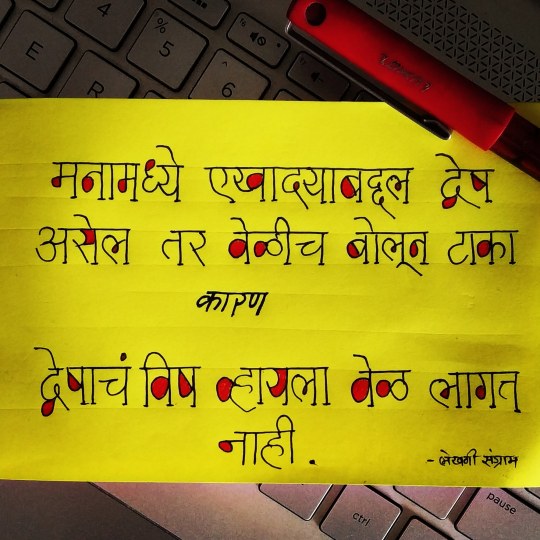 मनामध्ये एखादयाबद्दल द्वेष
असेल तर वेळीच बोलून टाका
कारण
द्वेषाचं विष व्हायला वेळ लागत
नाही.
- लेखणी संग्राम
E
R
$
4
%
5
^
6
ctrl
pause